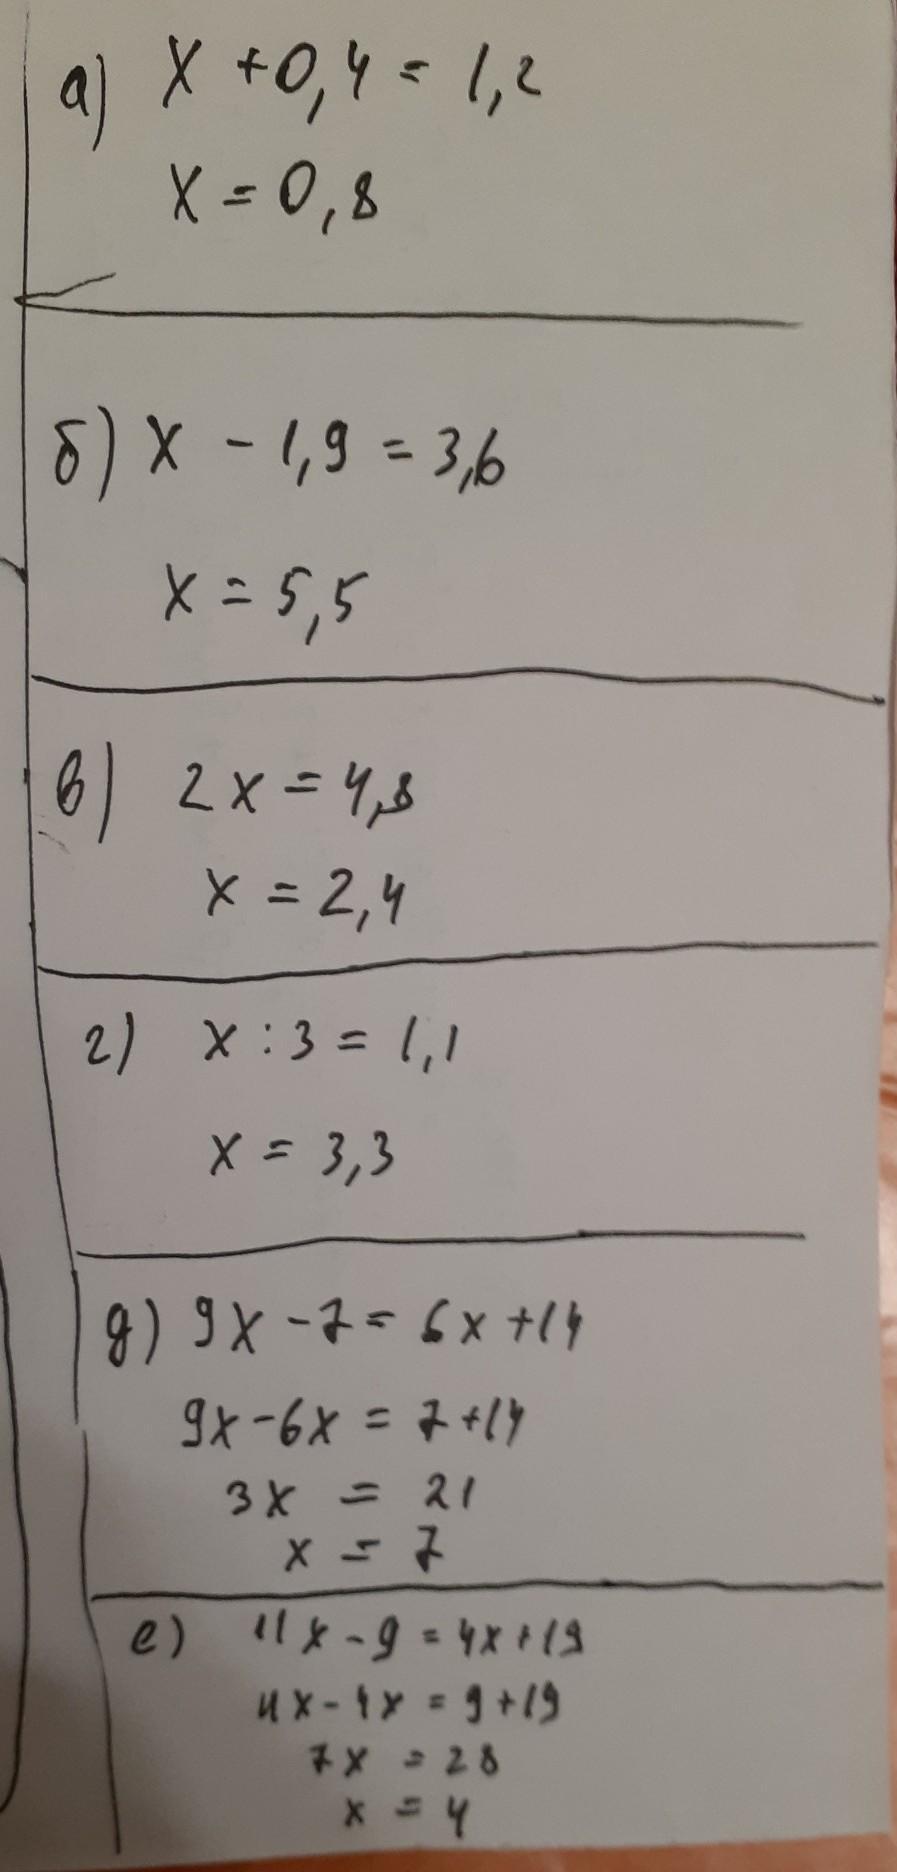 а) x + 0,4 = 1,2
x = 0,8
б) x - 1,9 = 3,6
x = 5,5
в) 2x = 4,8
x = 2,4
г) x : 3 = 1,1
x = 3,3
д) 9x - 7 = 6x + 14
9x - 6x = 7 + 14
3x = 21
x = 7
е) 11x - 9 = 4x + 19
11x - 4x = 9 + 19
7x = 28
x = 4